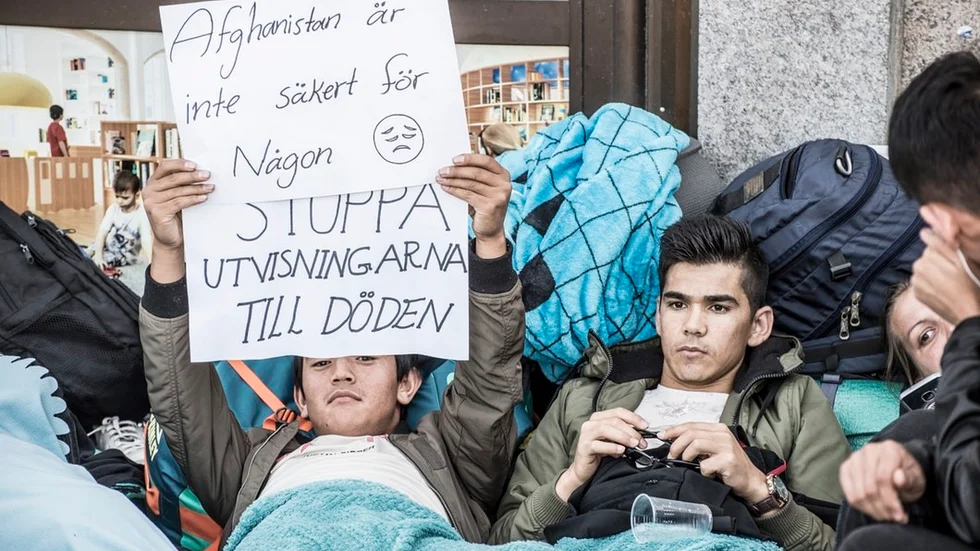 Afghanistan är
inte säkert för
Någon
STOPPA
UTVISNINGARNA
TILL DÖDEN